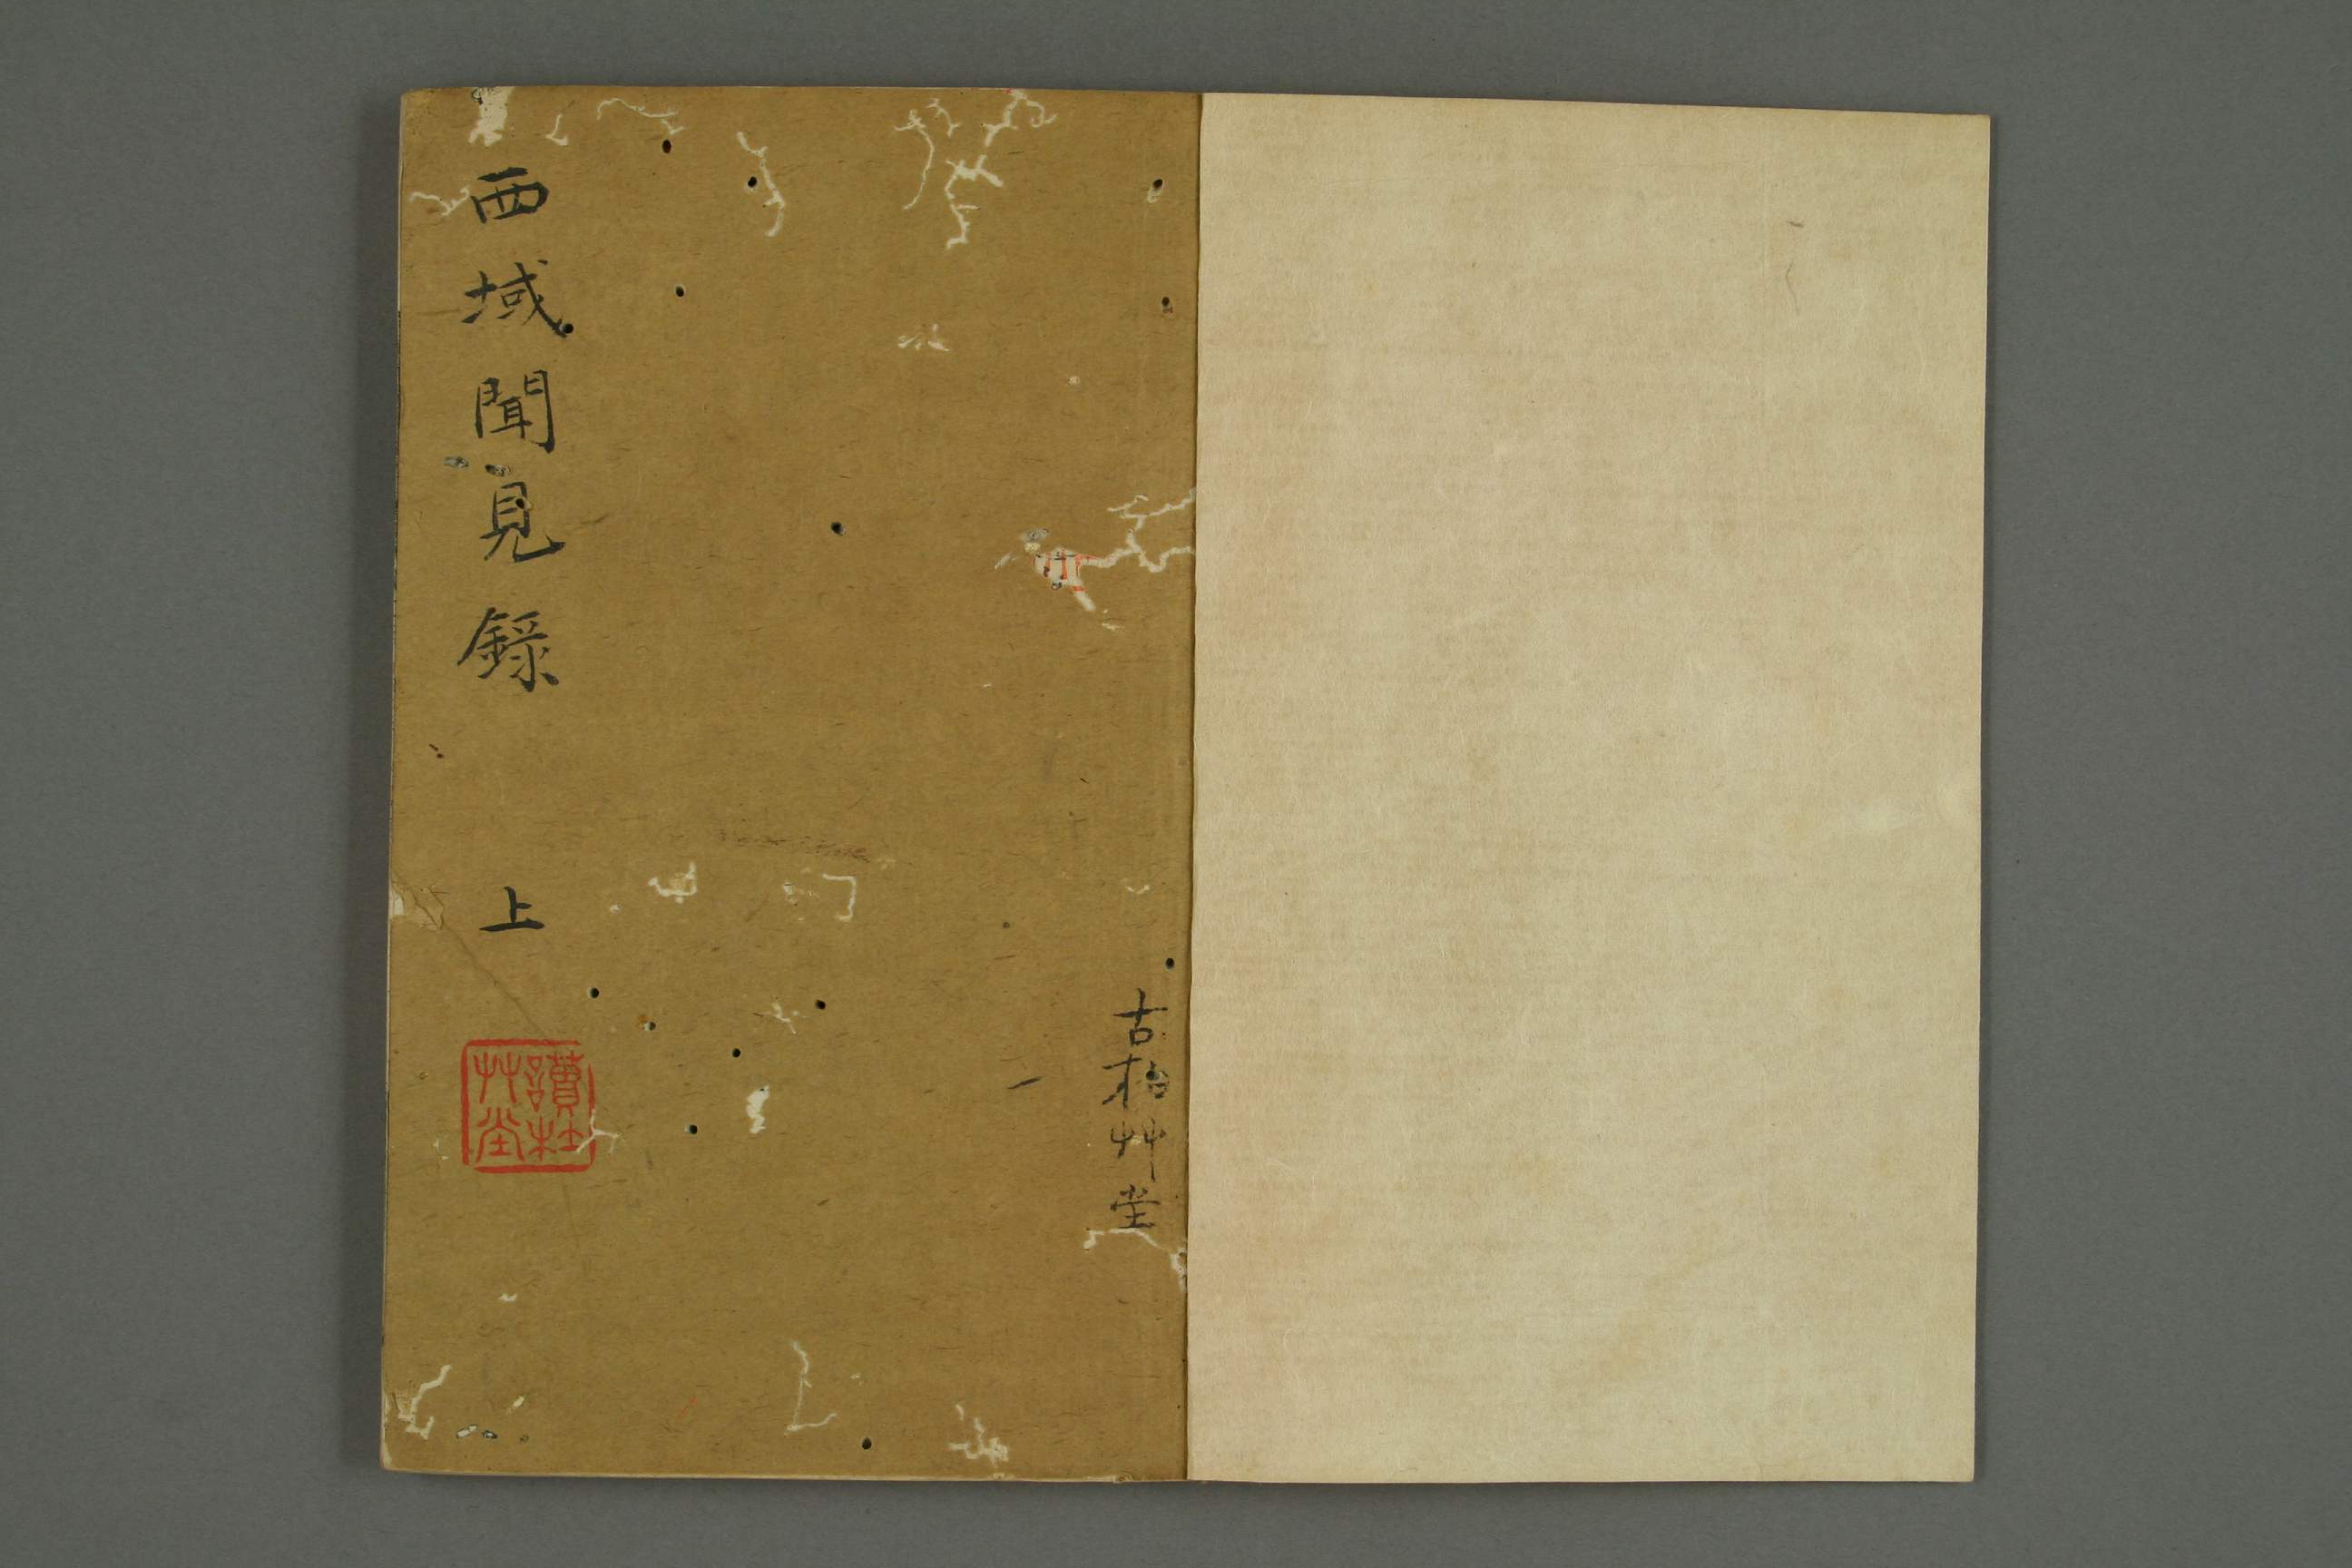 古柏艸堂
西域聞見錄 上
讀杜
艸堂